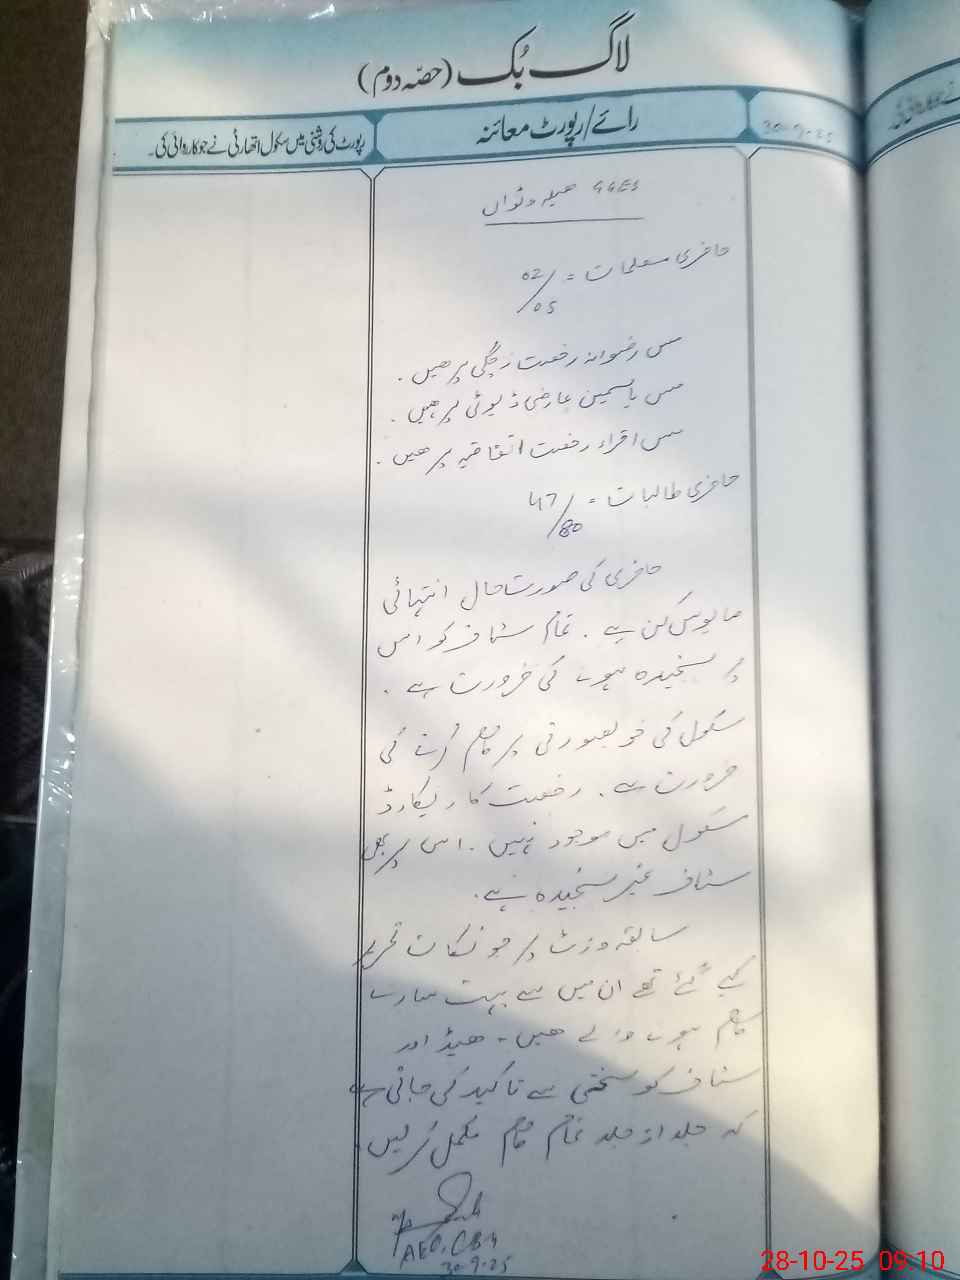 لاگ بُک (حصّہ دوم)
رائے/رپورٹ معائنہ
30-9-25
رپورٹ کی روشنی میں سکول اتھارٹی نے جو کاروائی کی۔
GGES
حاضری معلمات = 02/05
مس رضوانہ رخصت زچگی پر ھیں.
مس یاسمین عارضی ڈیوٹی پر ھیں.
مس اقراء رخصت اتفاقیہ پر ھیں.
حاضری طالبات = 47/80
حاضری کی صورتحال انتہائی
مایوس کن ہے. تمام سٹاف کو اس
پر سنجیدہ ہونے کی ضرورت ہے.
سکول کی خوبصورتی پر کام کرنے کی
ضرورت ہے. رخصت کا ریکارڈ
سکول میں موجود نہیں. اس پر بھی
سٹاف غیر سنجیدہ ہے.
سابقہ وزٹ پر جو نکات تحریر
کیے گئے تھے ان میں سے بہت سارے
کام ہونے والے ھیں - ھیڈ اور
سٹاف کو سختی سے تاکید کی جاتی ہے
کہ جلد از جلد تمام کام مکمل کر لیں.
AEO,
30-9-25
28-10-25 09:10